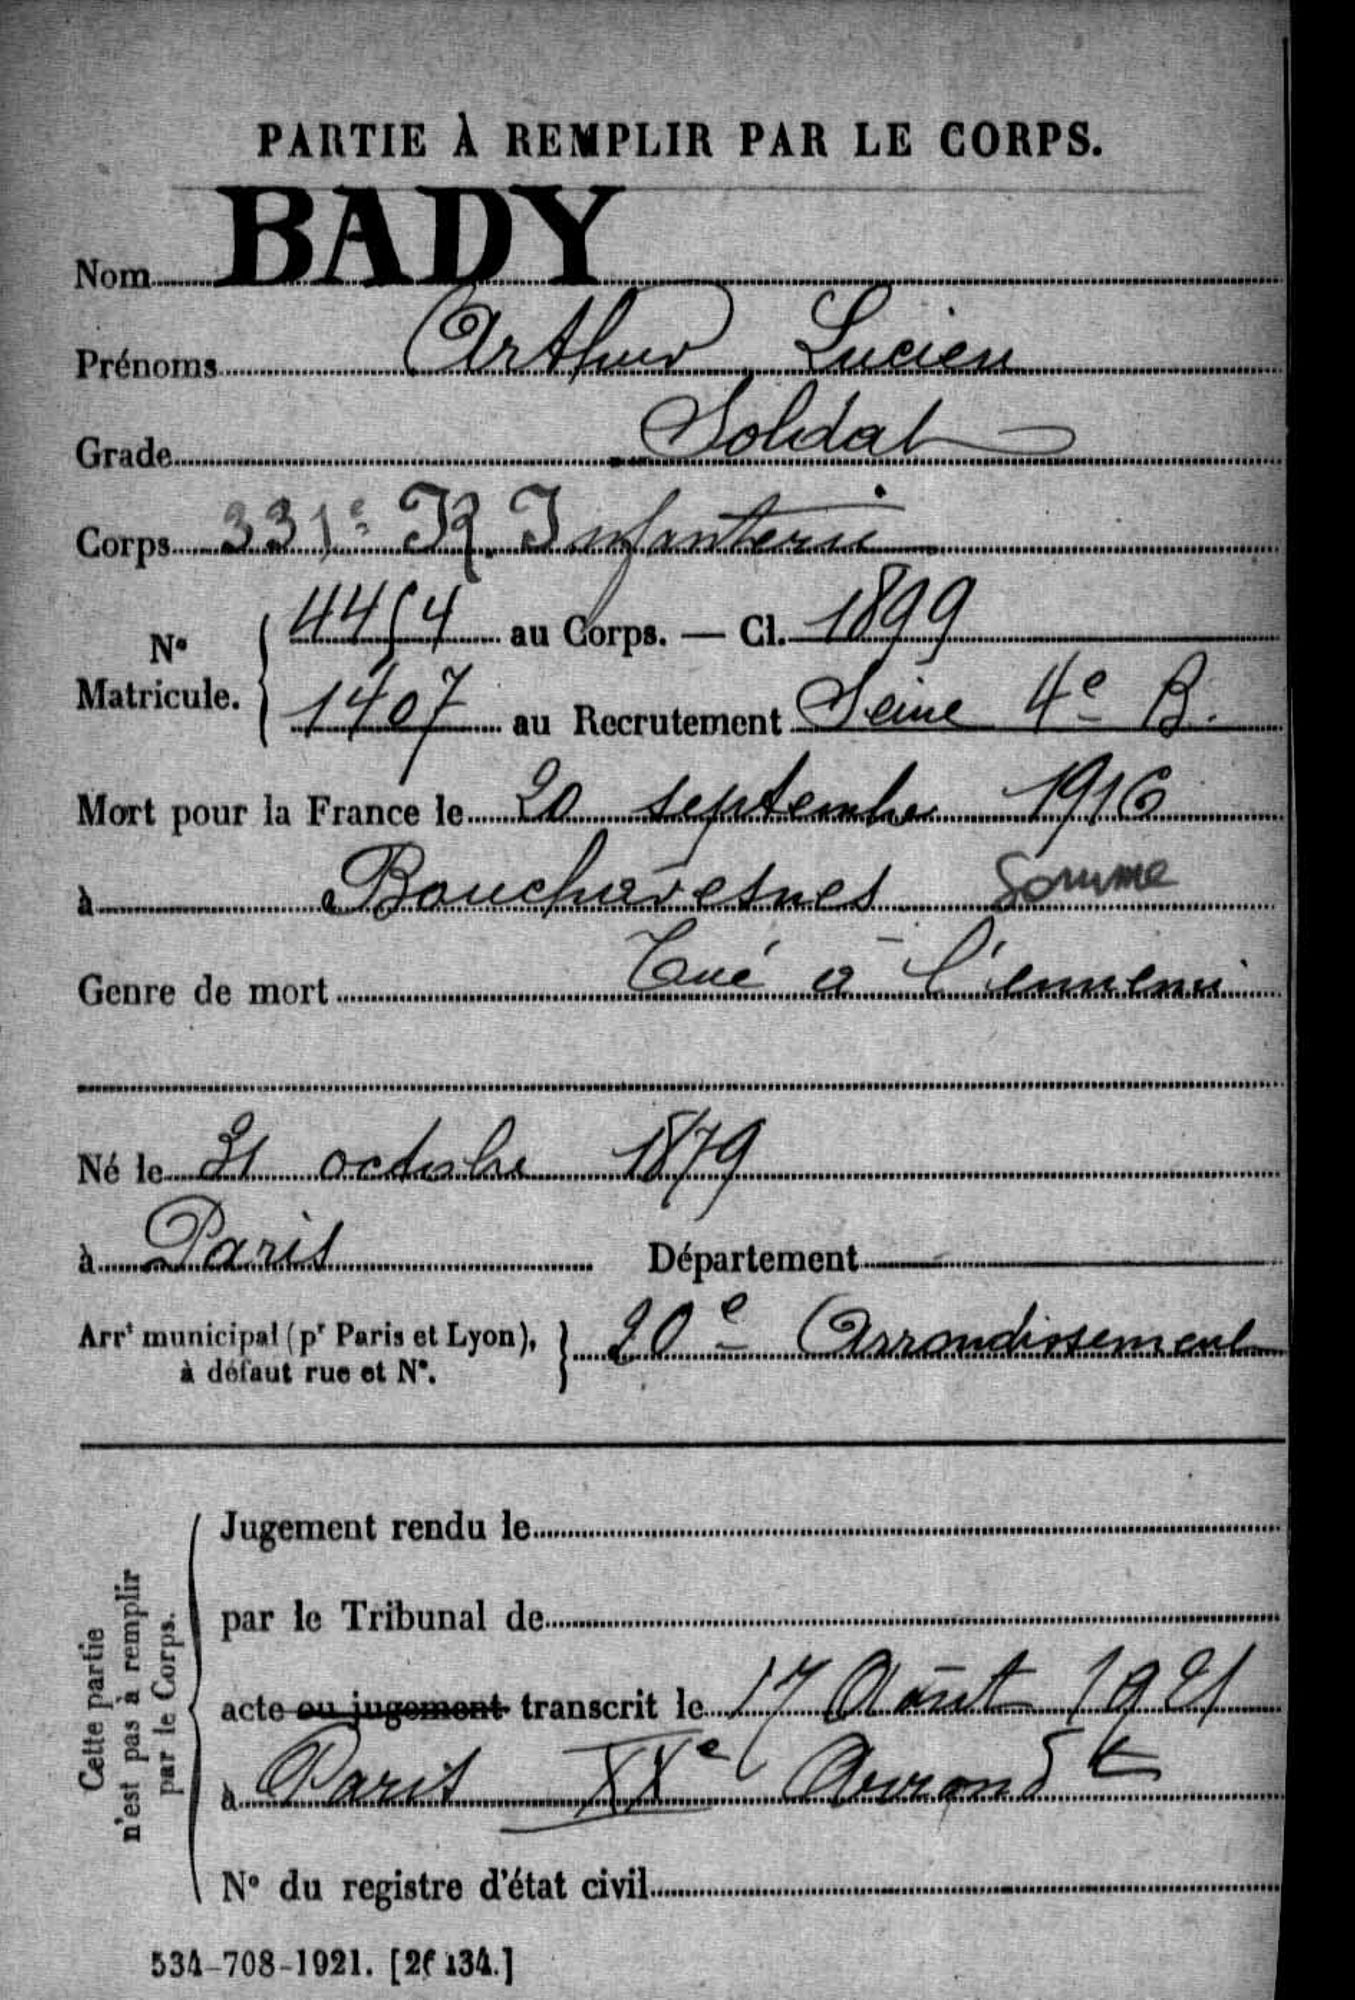 PARTIE À REMPLIR PAR LE CORPS.
Nom BADY
Prénoms Arthur Lucien
Grade Soldat
Corps 331e R. Infanterie
No Matricule. { 4454 au Corps. — Cl. 1899
1407 au Recrutement Seine 4e B.
Mort pour la France le 20 septembre 1916
à Bouchavesnes Somme
Genre de mort Tué à l'ennemi
Né le 31 octobre 1879
à Paris Département
Arrt municipal (pr Paris et Lyon), à défaut rue et No. } 20e Arrondissement
Cette partie n'est pas à remplir par le Corps.
Jugement rendu le
par le Tribunal de
acte ou jugement transcrit le 17 Août 1921
à Paris XXe Arrondt
No du registre d'état civil
534-708-1921. [26134.]